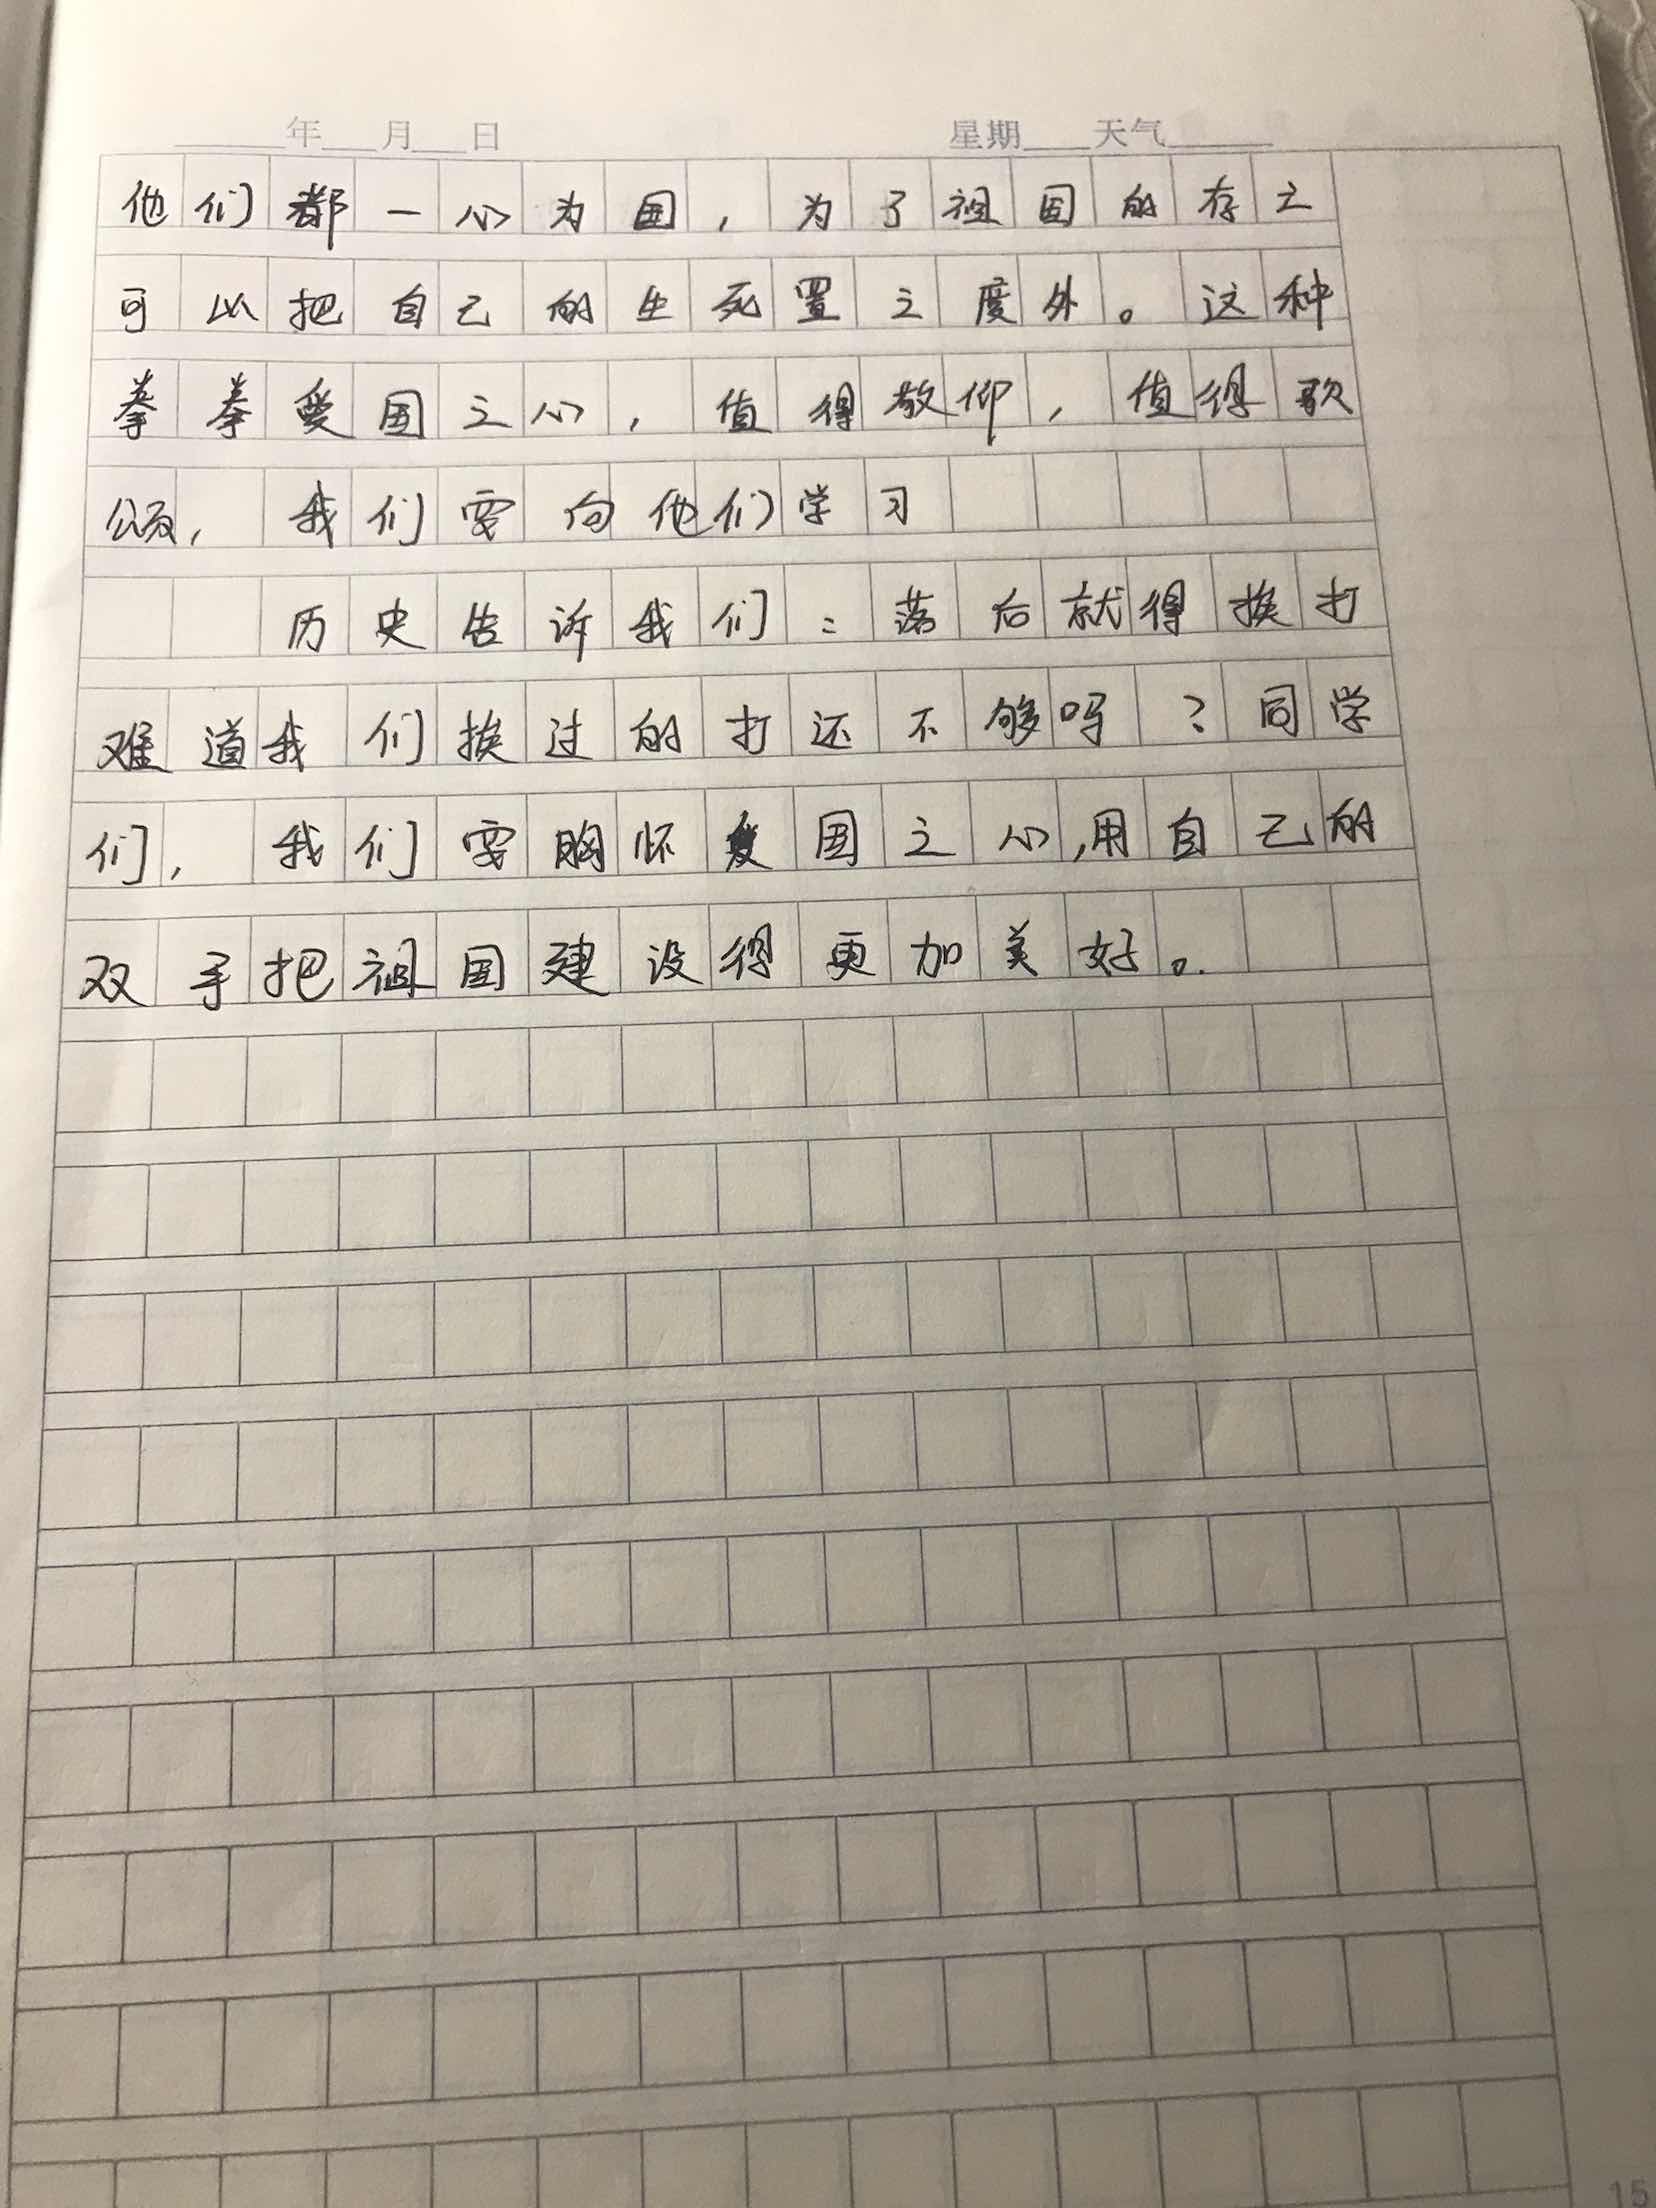 年 月 日 星期 天气
他们都一心为国，为了祖国的存之
可以把自己的生死置之度外。这种
拳拳爱国之心，值得敬仰，值得歌
颂，我们要向他们学习
历史告诉我们：落后就得挨打
难道我们挨过的打还不够吗？同学
们，我们要胸怀爱国之心，用自己的
双手把祖国建设得更加美好。
15